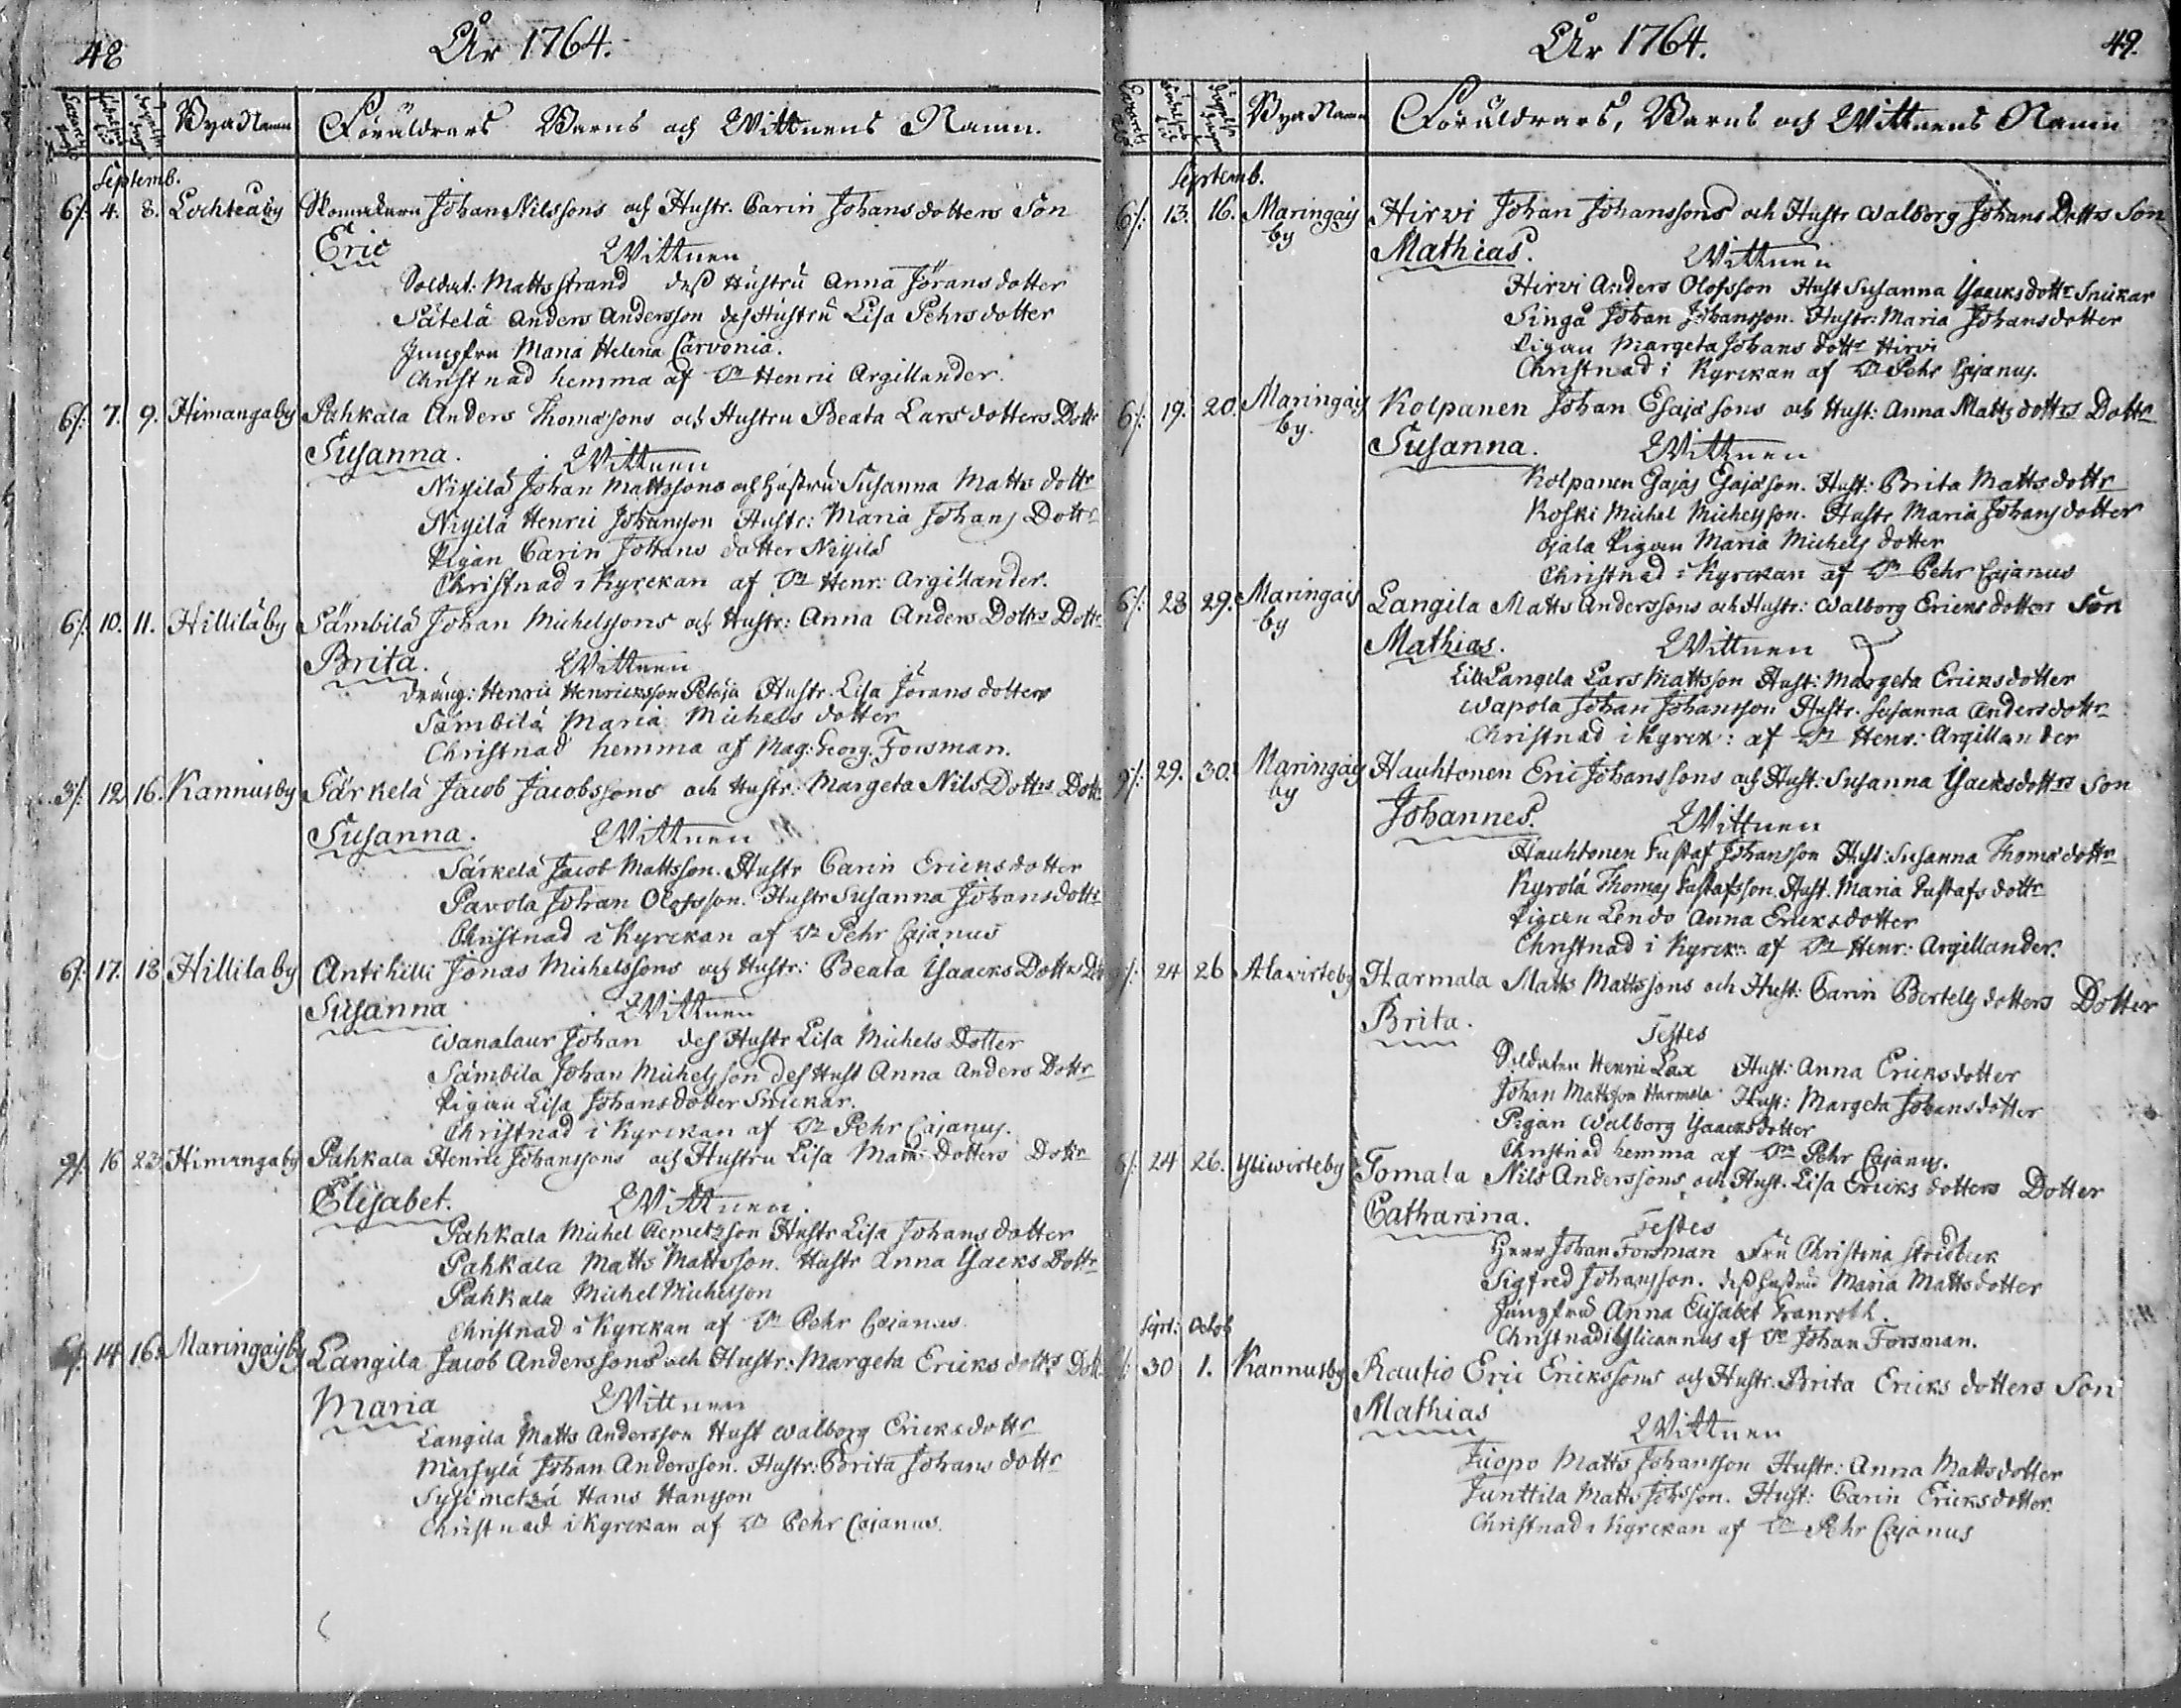 48
År 1764.
Bya Namn Föräldrars Barns och Wittnens Namn.
Septemb.
6/. 4. 8. Lochteåby Skomakarn Johan Nilssons och Hustr. Carin Johansdotters Son
Eric Wittnen
Soldat: Matts Strand dess Hustru Anna Jöransdotter
Sätelä Anders Andersson dess Hustru Lisa Pehrsdotter
Jungfru Maria Helena Carvonia.
Christnad hemma af Dn Henric Argillander.
6/. 7. 9. Himangaby Pahkala Anders Thomæsons och Hustru Beata Larsdotters Dottr
Susanna. Wittnen
Niyilä Johan Mattssons och Hustru Susanna Matts dottr
Niyilä Henric Johansson Hustr: Maria Johans Dottr
Pigan Carin Johans dotter Niyilä
Christnad i Kyrckan af Dn Henr: Argillander.
6/. 10. 11. Hilliläby Sämbilä Johan Michelssons och Hustr: Anna Anders Dottrs Dottr
Brita. Wittnen
Dräng: Henric Henricksson Petäja Hustr. Lisa Jörans dotter
Sämbilä Maria Michels dotter
Christnad hemma af Mag: Georg. Forsman.
3/. 12 16. Kannusby Särkelä Jacob Jacobssons och Hustr: Margeta Nils Dottrs Dottr
Susanna. Wittnen
Särkelä Jacob Mattsson. Hustr Carin Ericksdotter
Pavola Johan Olofsson. Hustr Susanna Johansdottr
Christnad i Kyrckan af Dn Pehr Cajanus
6/. 17. 18 Hillilaby Antihilli Jonas Michelssons och Hustr: Beata Isaacks Dottrs Dottr
Susanna Wittnen
Wanalaur Johan dess Hustr Lisa Michels Dotter
Sämbila Johan Michelsson dess Hust Anna Anders Dottr
Pigan Lisa Johansdotter Snickar.
Christnad i Kyrckan af Dn Pehr Cajanus.
9/. 16 23 Himangaby Pahkala Henric Johanssons och Hustru Lisa Matts Dotters Dottr
Elisabet. Wittnen.
Pahkala Michel Clemetzson Hustr Lisa Johansdotter
Pahkala Matts Mattsson. Hustr Anna Isacks Dottr
Pahkala Michel Michelsson
Christnad i Kyrckan af Dn Pehr Cajanus
6/. 14 16. Maringaisby Langila Jacob Anderssons och Hustr: Margeta Ericksdottrs Dottr
Maria Wittnen
Langila Matts Andersson Hust Walborg Ericksdottr
Märsylä Johan Andersson. Hustr: Brita Johans dottr
Sysimetzä Hans Hansson
Christnad i Kyrckan af Dn Pehr Cajanus.
49.
År 1764.
Bya Namn Föräldrars, Barns och Wittnens Namn
Septemb.
6/. 13. 16. Maringais Hirvi Johan Johanssons och Hustr Walborg Johans Dottrs Son
by Mathias. Wittnen
Hirvi Anders Olofsson Hust Susanna Isaacksdottr Snickar
Singa Johan Johansson. Hustr: Maria Johansdotter
Pigan Margeta Johans dottr Hirvi
Christnad i Kyrckan af Dn Pehr Cajanus.
6/. 19. 20. Maringais Kolpanen Johan Esajæsons och Hust: Anna Matts dottrs Dottr
by. Susanna. Wittnen
Kolpanen Esajas Esajæson. Hust: Brita Mattsdottr
Koski Michel Michelsson. Hustr Maria Johansdotter
Ojala Pigan Maria Michels dotter
Christnad i Kyrckan af Dn Pehr Cajanus
6/. 28 29. Maringais Langila Matts Anderssons och Hustr: Walborg Ericksdotters Son
by Mathias. Wittnen
Lill Langila Lars Mattsson Hust: Margeta Ericksdotter
Wapola Johan Johansson Hustr. Susanna Andersdottr
Christnad i Kyrck: af Dn Henr: Argillander
9/. 29. 30. Maringais Hauhtonen Eric Johanssons och Hust: Susanna Isacksdottrs Son
by Johannes. Wittnen
Hauhtonen Gustaf Johansson Hust: Susanna Thomædottr
Kyrölä Thomas Gustafsson. Hust. Maria Gustafs dottr
Pigan Lendo Anna Ericksdotter
Christnad i Kyrck: af Dn Henr: Argillander.
24 26 Alavirteby Harmala Matts Mattssons och Hust: Carin Bertels dotters Dotter
Brita. Testes
Soldaten Henric Lax Hust: Anna Ericksdotter
Johan Mattsson Harmala Hust: Margeta Johansdotter
Pigan Walborg Isaacksdotter
Christnad hemma af Dn Pehr Cajanus.
6/. 24 26. Yliwirteby Tomala Nils Anderssons och Hust. Lisa Ericks dotters Dotter
Catharina. Testes
Herr Johan Forsman Fru Christina Stredbeck
Sigfred Johansson. dess Hustru Maria Mattsdotter
Jungfru Anna Elisabet Granroth.
Christnad i Ylicannus af Dn Johan Forsman.
Sept: Octob
30 1. Kannusby Rautio Eric Ericssons och Hustr. Brita Ericks dotters Son
Mathias Wittnen
Juopo Matts Johansson Hustr: Anna Mattsdotter
Junttila Matts Johsson. Hust: Carin Ericksdotter.
Christnad i Kyrckan af Dn Pehr Cajanus